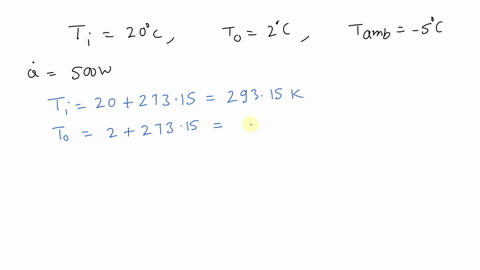 Ti = 20°C, To = 2°C, Tamb = -5°C
ȧ = 500W
Ti = 20 + 273.15 = 293.15 K
To = 2 + 273.15 =